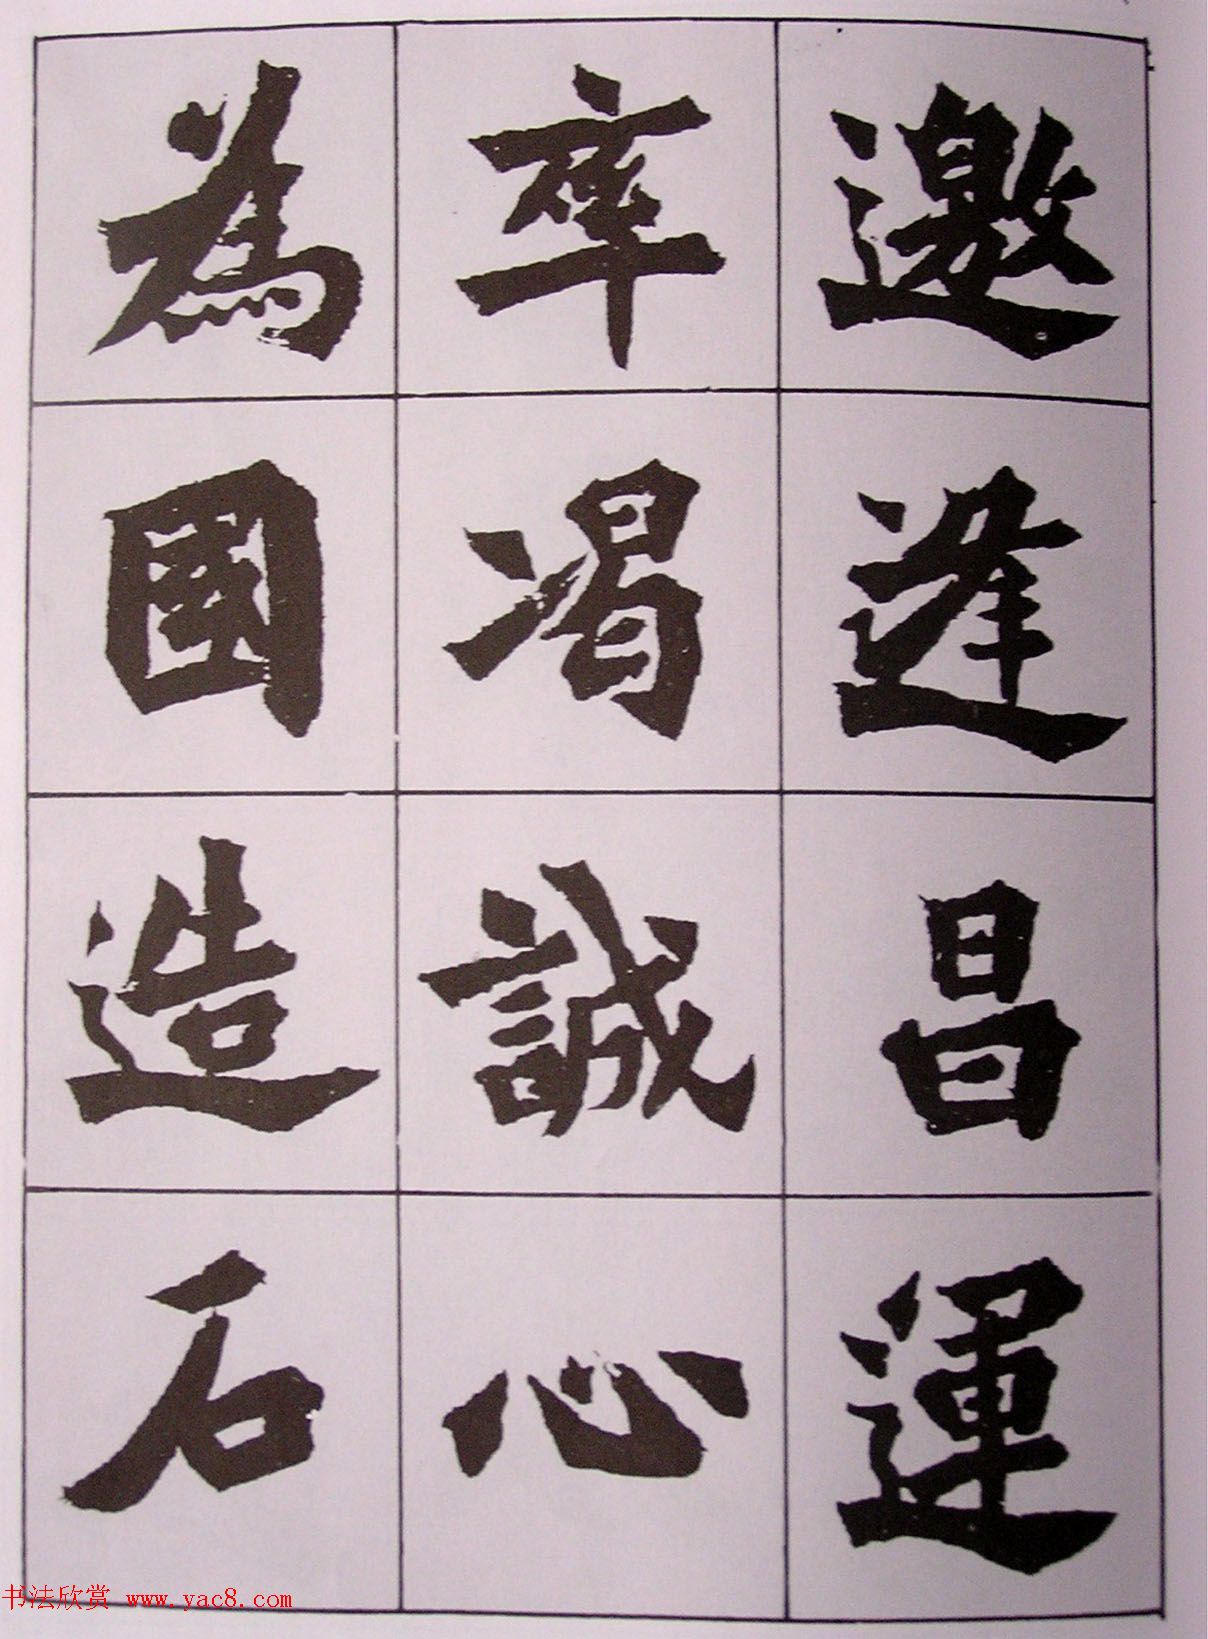 邀逢昌運
率竭誠心
為國造石
书法欣赏 www.yac8.com